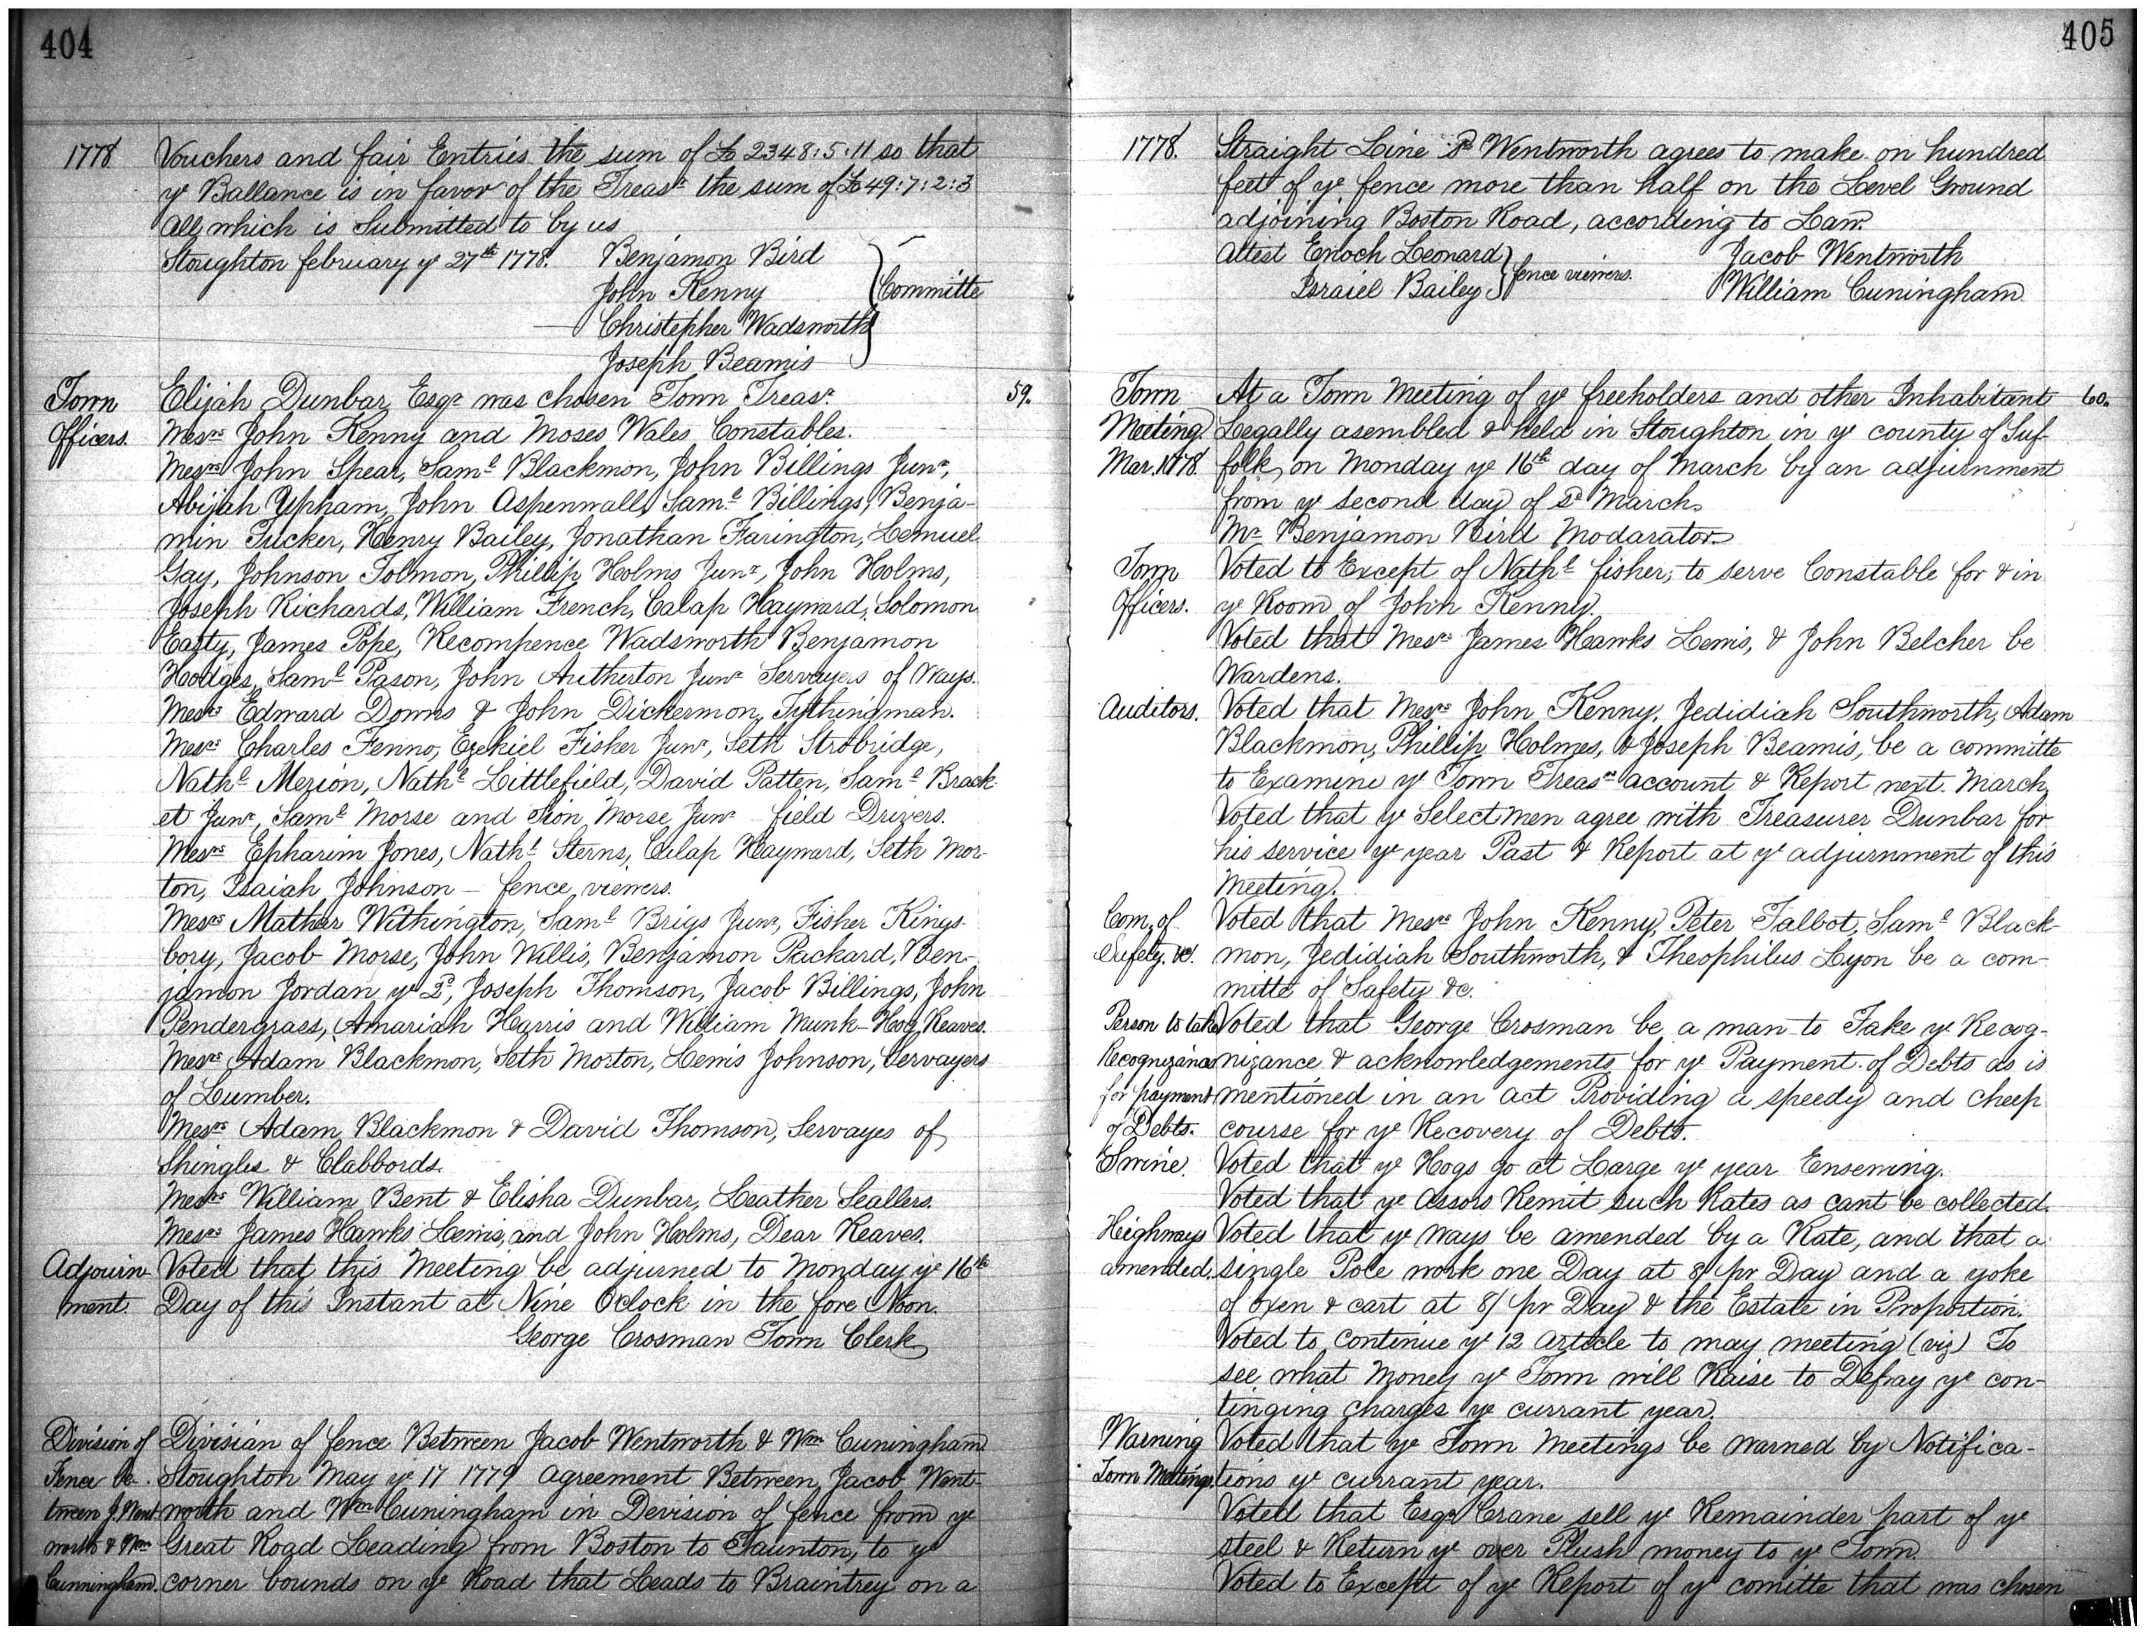 404
1778 Vouchers and fair Entries the sum of £2348:5:11 so that
ye Ballance is in favor of the Treasr the sum of £49:7:2:3
all which is Submitted to by us
Stoughton february ye 27th 1778. Benjamon Bird
John Kenny } Committe
Christepher Wadsworth
Joseph Beamis
Town Elijah Dunbar Esqr was chosen Town Treasr 59.
Officers. Mesrs John Kenny and Moses Wales Constables.
Mesrs John Spear, Saml Blackmon, John Billings Junr,
Abijah Upham, John Aspenwall, Saml Billings, Benja-
min Tucker, Henry Bailey, Jonathan Farington, Lemuel
Gay, Johnson Tolmon, Phillip Holms Junr, John Holms,
Joseph Richards, William French, Calap Hayward, Solomon
Easty, James Pope, Recompence Wadsworth Benjamon
Hodges, Saml Pason, John Autherton Junr Servayers of Ways.
Mesrs Edward Downs & John Dickermon, Tythingman.
Mesrs Charles Fenno, Ezekiel Fisher Junr, Seth Strobridge,
Nathl Merion, Nathl Littlefield, David Patten, Saml Brack-
et Junr, Saml Morse and Sion Morse Junr field Drivers.
Mesrs Epharim Jones, Nathl Sterns, Calap Hayward, Seth Mor-
ton, Isaiah Johnson – fence viewers.
Mesrs Mather Withington, Saml Brigs Junr, Fisher Kings-
bory, Jacob Morse, John Willis, Benjamon Packard, Ben-
jamon Jordan ye 2d, Joseph Thomson, Jacob Billings, John
Pendergrass, Amariah Harris and William Munk – Hog Reaves.
Mesrs Adam Blackmon, Seth Morton, Lewis Johnson, Servayers
of Lumber.
Mesrs Adam Blackmon & David Thomson, Servayes of
Shingles & Clabbords.
Mesrs William Bent & Elisha Dunbar, Leather Seallers.
Mesrs James Hawks Lewis, and John Holms, Dear Reaves.
Adjourn- Voted that this Meeting be adjurned to Monday ye 16th
ment. Day of this Instant at Nine Oclock in the fore Noon.
George Crosman Town Clerk
Division of Divisian of fence Between Jacob Wentworth & Wm Cuningham
Fence be- Stoughton May ye 17 1779 agreement Between Jacob Went-
tween J. Went- worth and Wm Cuningham in Devision of fence from ye
worth & Wm Great Road Leading from Boston to Taunton, to ye
Cunningham. corner bounds on ye Road that Leads to Braintrey on a
405
1778. Straight Line sd Wentworth agrees to make on hundred
feet of ye fence more than half on the Level Ground
adjoining Boston Road, according to Law.
attest Enoch Leonard } fence viewers. Jacob Wentworth
Israiel Bailey William Cuningham
Town At a Town Meeting of ye freeholders and other Inhabitant 60.
Meeting Legally asembled & held in Stoughton in ye county of Suf-
Mar. 1778. folk, on Monday ye 16th day of March by an adjurnment
from ye second day of sd March.
Mr Benjamon Bird Modarator.
Town Voted to Except of Nathl fisher, to serve Constable for & in
Officers. ye Room of John Kenny.
Voted that Mesrs James Hawks Lewis, & John Belcher be
Wardens.
Auditors. Voted that Mesrs John Kenny, Jedidiah Southworth, Adam
Blackmon, Phillip Holmes, & Joseph Beamis, be a committe
to Examine ye Town Treasrs account & Report next March,
Voted that ye Selectmen agree with Treasurer Dunbar for
his service ye year Past & Report at ye adjurnment of this
Meeting.
Com. of Voted that Mesrs John Kenny, Peter Talbot, Saml Black-
Safety. &c. mon, Jedidiah Southworth, & Theophilus Lyon be a com-
mitte of Safety &c.
Person to take Voted that George Crosman be a man to Take ye Recog-
Recognizance nizance & acknowledgements for ye Payment of Debts as is
for payment mentioned in an act Providing a speedy and cheep
of Debts. course for ye Recovery of Debts.
Swine. Voted that ye Hogs go at Large ye year Ensewing.
Voted that ye Assors Remit such Rates as cant be collected.
Heighways Voted that ye ways be amended by a Rate, and that a
amended. single Pole work one Day at 8/ pr Day and a yoke
of oxen & cart at 8/ pr Day & the Estate in Proportion.
Voted to continue ye 12 article to may meeting (viz) To
see what Money ye Town will Raise to Defray ye con-
tinging charges ye currant year.
Warning Voted that ye Town Meetings be warned by Notifica-
Town Meetings. tions ye currant year.
Voted that Esqr Crane sell ye Remainder part of ye
steel & Return ye over Plush money to ye Town.
Voted to Except of ye Report of ye comitte that was chosen